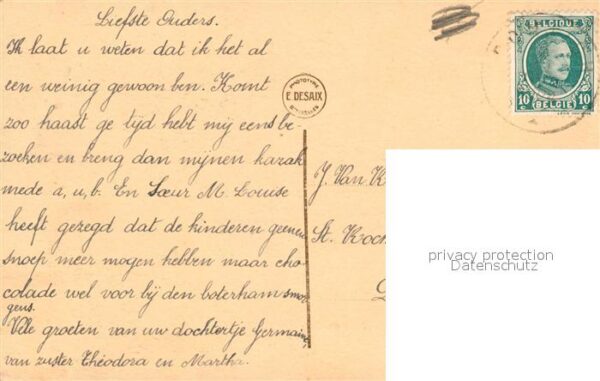 Liefste Ouders.
Ik laat u weten dat ik het al
een weinig gewoon ben. Komt
zoo haast ge tijd hebt mij eens be-
zoeken en breng dan mijnen kazak
mede a, u, b. En Sœur M. Louise
heeft gezegd dat de kinderen geenen
snoep meer mogen hebben maar cho-
colade wel voor bij den boterham smor-
gens.
Vele groeten van uw dochtertje Germaine,
van zuster Théodora en Martha.
PHOTOTYPIE
E. DESAIX
BRUXELLES
BELGIQUE
10 10
BELGIË
J. Van K
St. Roch
privacy protection
Datenschutz